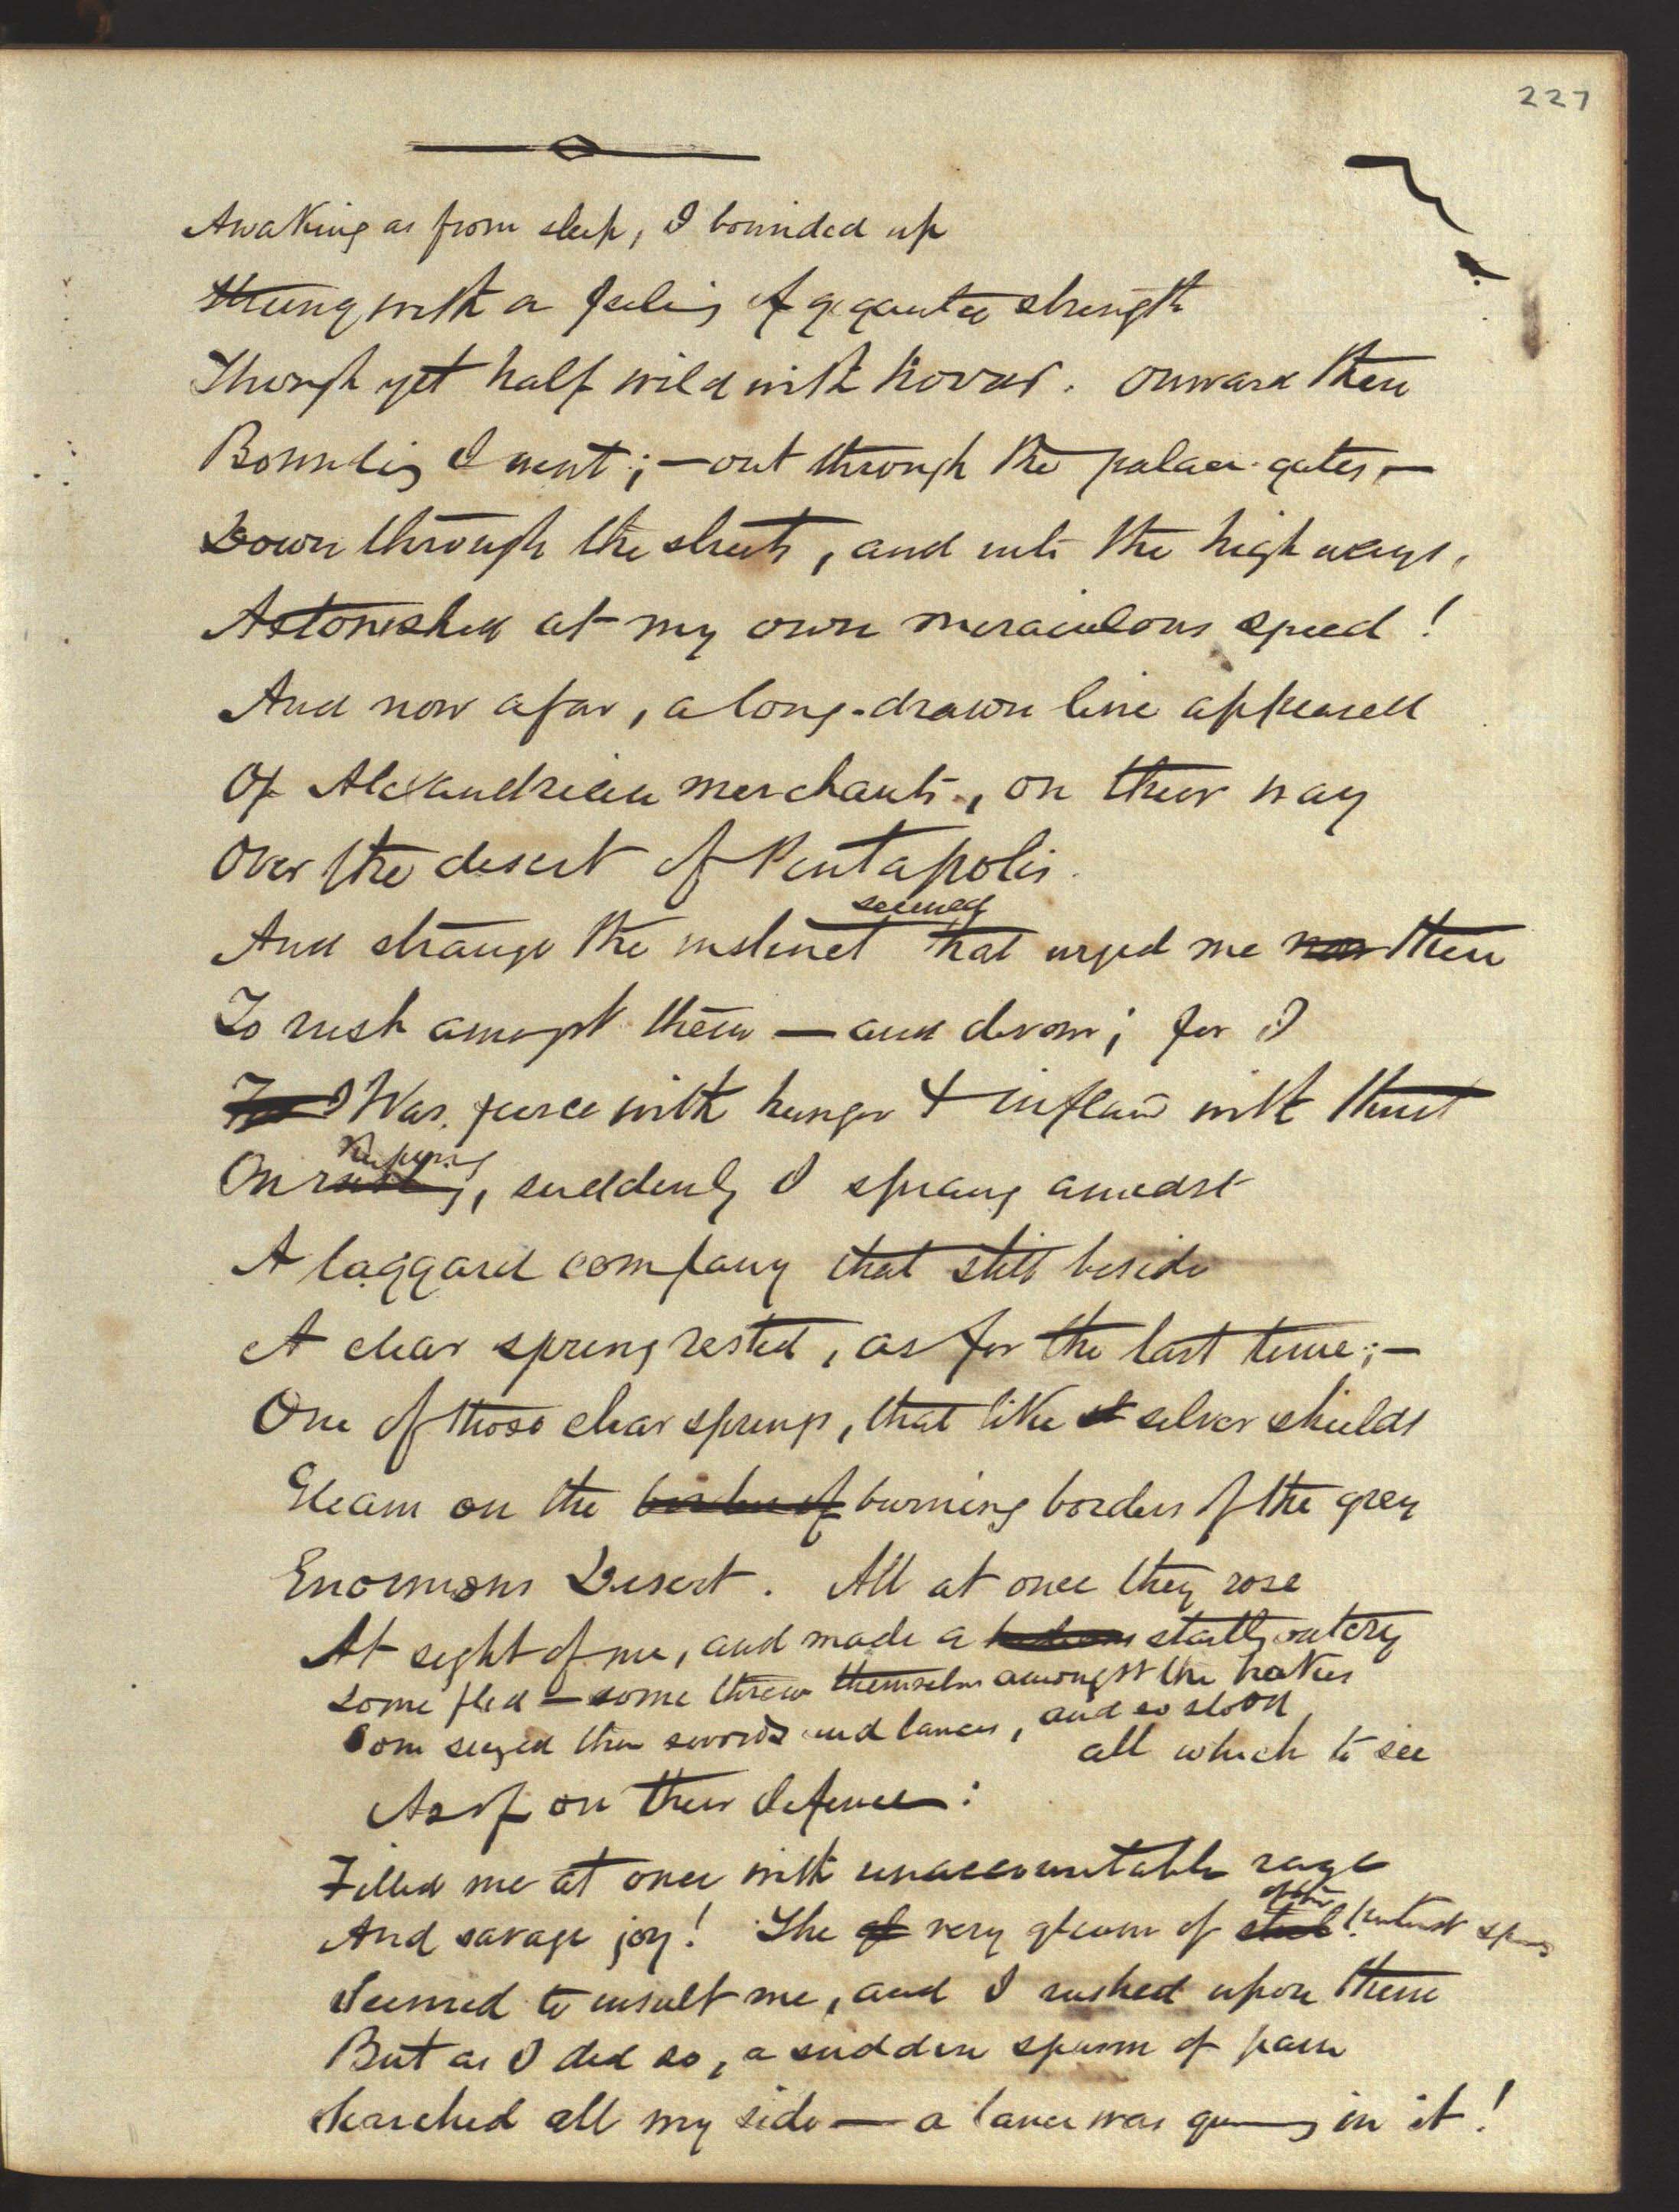 227
Awaking as from sleep, I bounded up
Strung with a feeling of gigantic strength
Though yet half wild with horror. Onward then
Bounding I went; — out through the palace-gates, —
Down through the streets, and into the high ways,
Astonished at my own miraculous speed!
And now afar, a long-drawn line appeared
Of Alexandrian merchants, on their way
Over the desert of Pentapolis.
seemed
And strange the instinct that urged me now then
To rush amongst them — and devour; for I
For I Was fierce with hunger & inflamed with thirst
On rushing, suddenly I sprang amidst
A laggard company that still beside
A clear spring rested, as for the last time; —
One of those clear springs, that like st silver shields
Gleam on the border of burning borders of the grey
Enormous Desert. All at once they rose
At sight of me, and made a startling outcry
Some fled — some threw themselves amongst the brakes
Some seized their swords and lances, and so stood,
all which to see
As if on their defence:
Filled me at once with unaccountable rage
And savage joy! The gl very gleam of steel
Seemed to insult me, and I rushed upon them
But as I did so, a sudden spasm of pain
Searched all my side — a lance was in it!